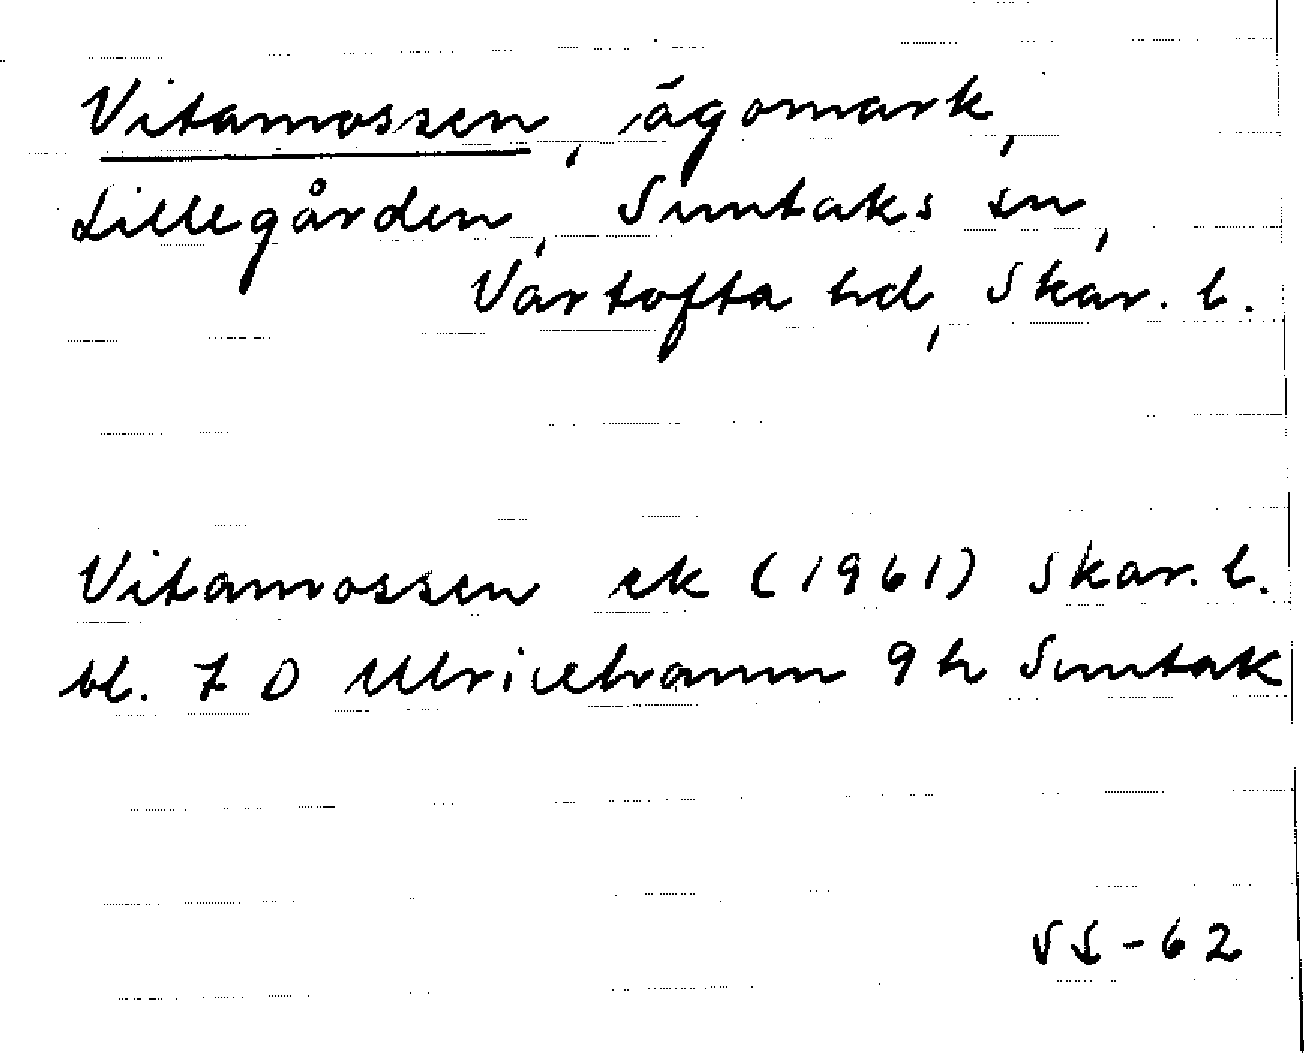 Vitamossen, ägomark,
Lillegården, Suntaks sn,
Vartofta hd, Skar. l.
Vitamossen ek (1961) Skar. l.
bl. 7 D Ulricehamn 9 h Suntak
SS-62